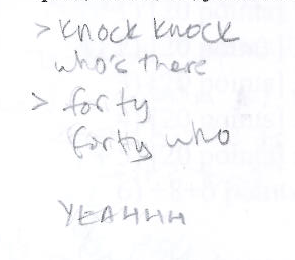 > KNOCK KNOCK
who's there
> forty
forty who
YEAHHH